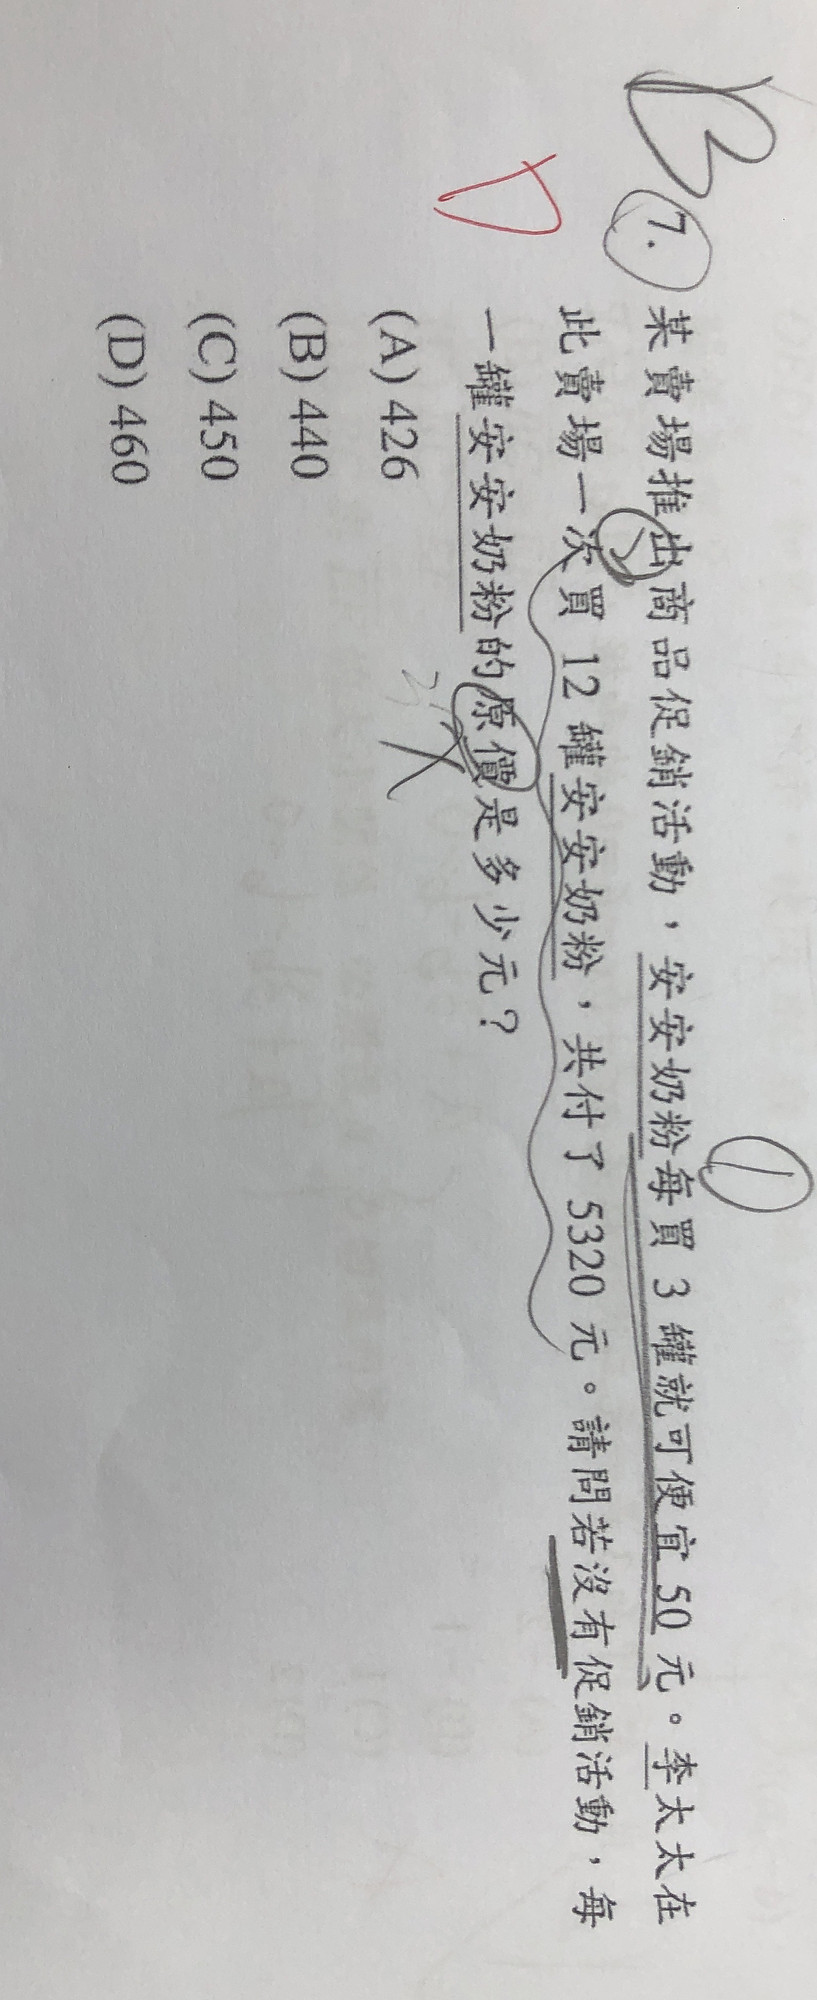 B
D
①
7. 某賣場推出商品促銷活動，安安奶粉每買 3 罐就可便宜 50 元。李太太在
此賣場一次買 12 罐安安奶粉，共付了 5320 元。請問若沒有促銷活動，每
一罐安安奶粉的原價是多少元？
(A) 426
(B) 440
(C) 450
(D) 460